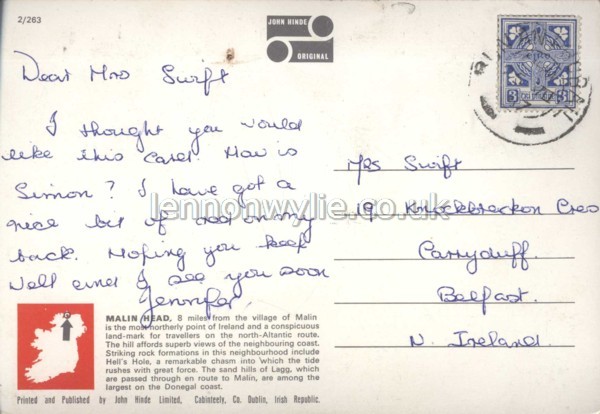 2/263
JOHN HINDE
ORIGINAL
3
Dear Mrs Swift
I thought you would
like this card. How is
Simon? I have got a
nice bit of red on my
back. Hoping you keep
well and I see you soon
Jennifer.
Mrs Swift
19 Knockbreckon Cres
Carryduff.
Belfast.
N. Ireland.
lennonwylie.co.uk
MALIN HEAD, 8 miles from the village of Malin
is the most northerly point of Ireland and a conspicuous
land-mark for travellers on the north-Altantic route.
The hill affords superb views of the neighbouring coast.
Striking rock formations in this neighbourhood include
Hell's Hole, a remarkable chasm into which the tide
rushes with great force. The sand hills of Lagg, which
are passed through en route to Malin, are among the
largest on the Donegal coast.
Printed and Published by John Hinde Limited, Cabinteely, Co. Dublin, Irish Republic.